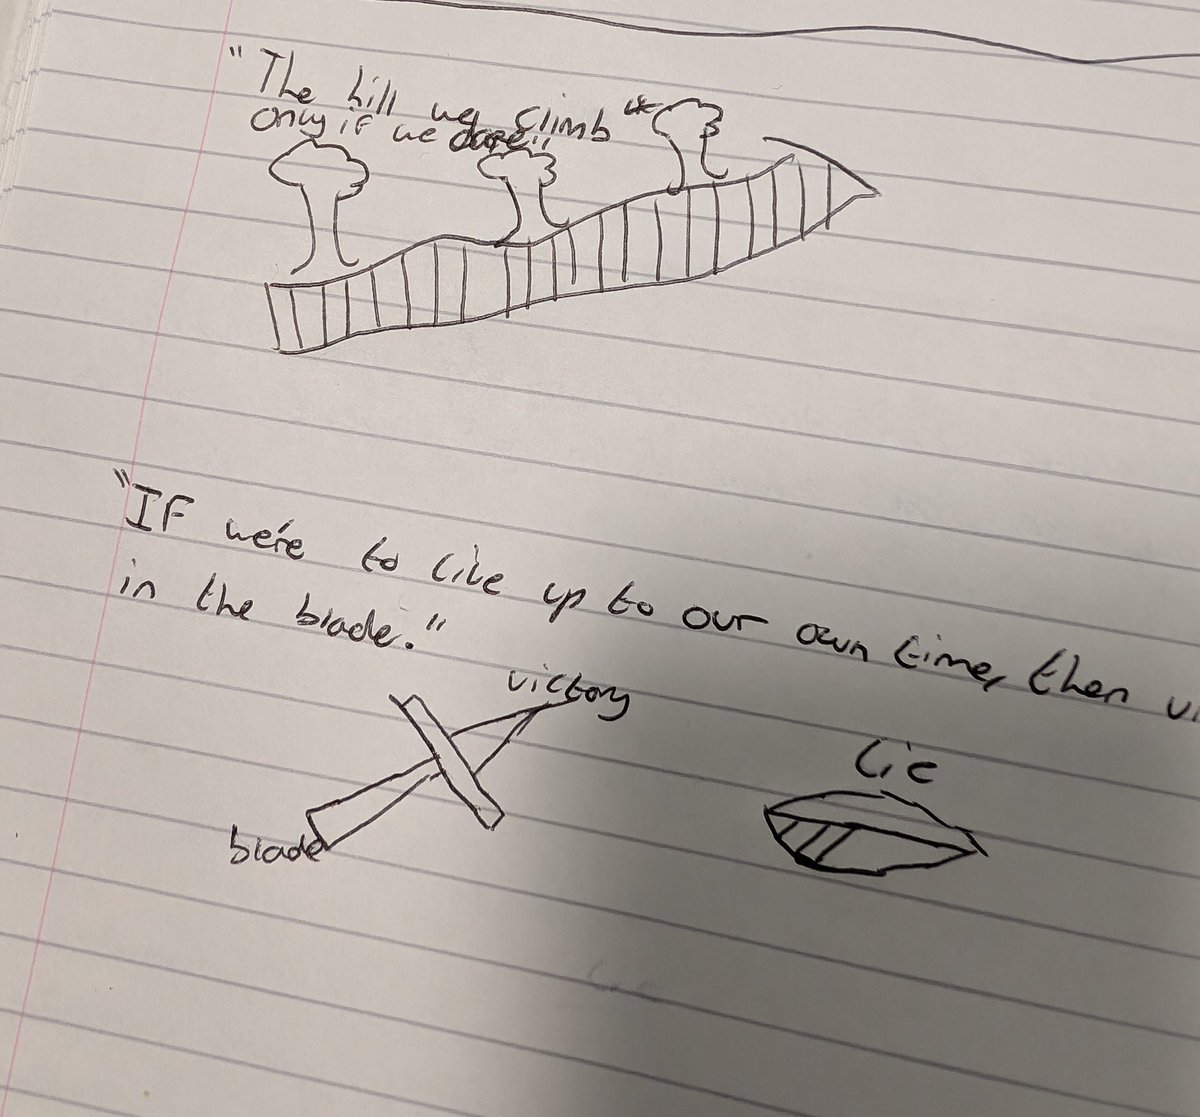 "The hill we climb"
only if we dare"
"IF we're to live up to our own time, then
in the blade."
victory
Lie
blade